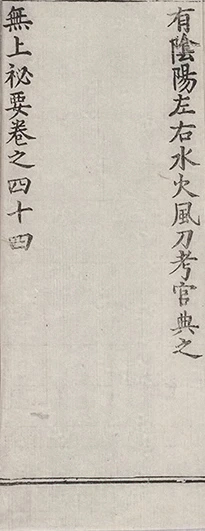 有陰陽左右水火風刀考官典之
無上祕要卷之四十四